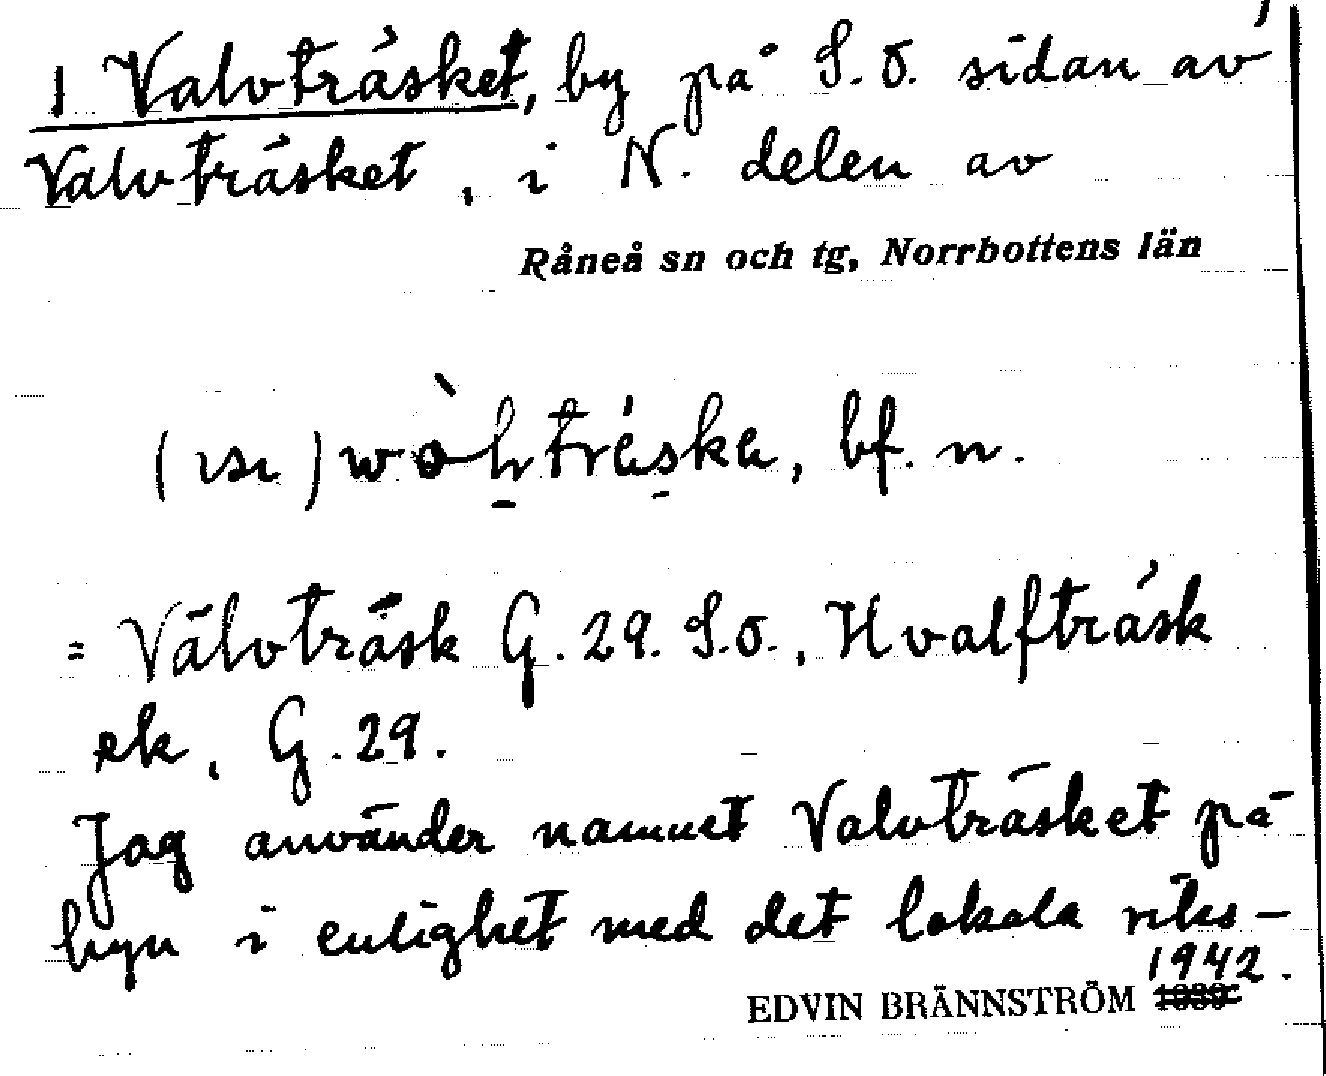 1 Valvträsket, by på S.Ö. sidan av
Valvträsket, i N. delen av
Råneå sn och tg, Norrbottens län
bf. n.
= Välvträsk G. 29. S.Ö., Hvalfträsk
ek, G. 29.
Jag använder namnet Valvträsket på
byn i enlighet med det lokala riks-
1942.
EDVIN BRÄNNSTRÖM 1939